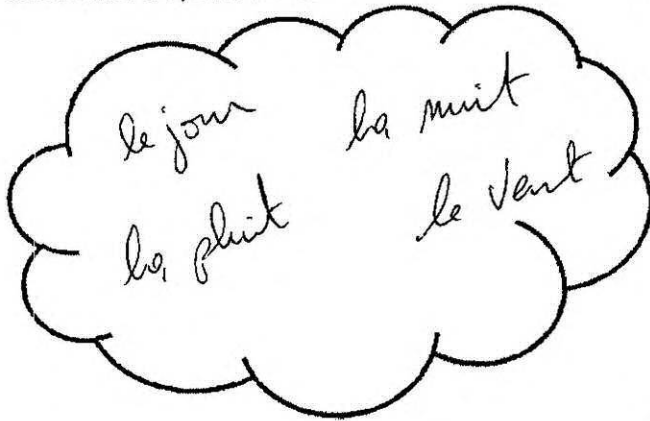 le jour
la nuit
la pluit
le vent